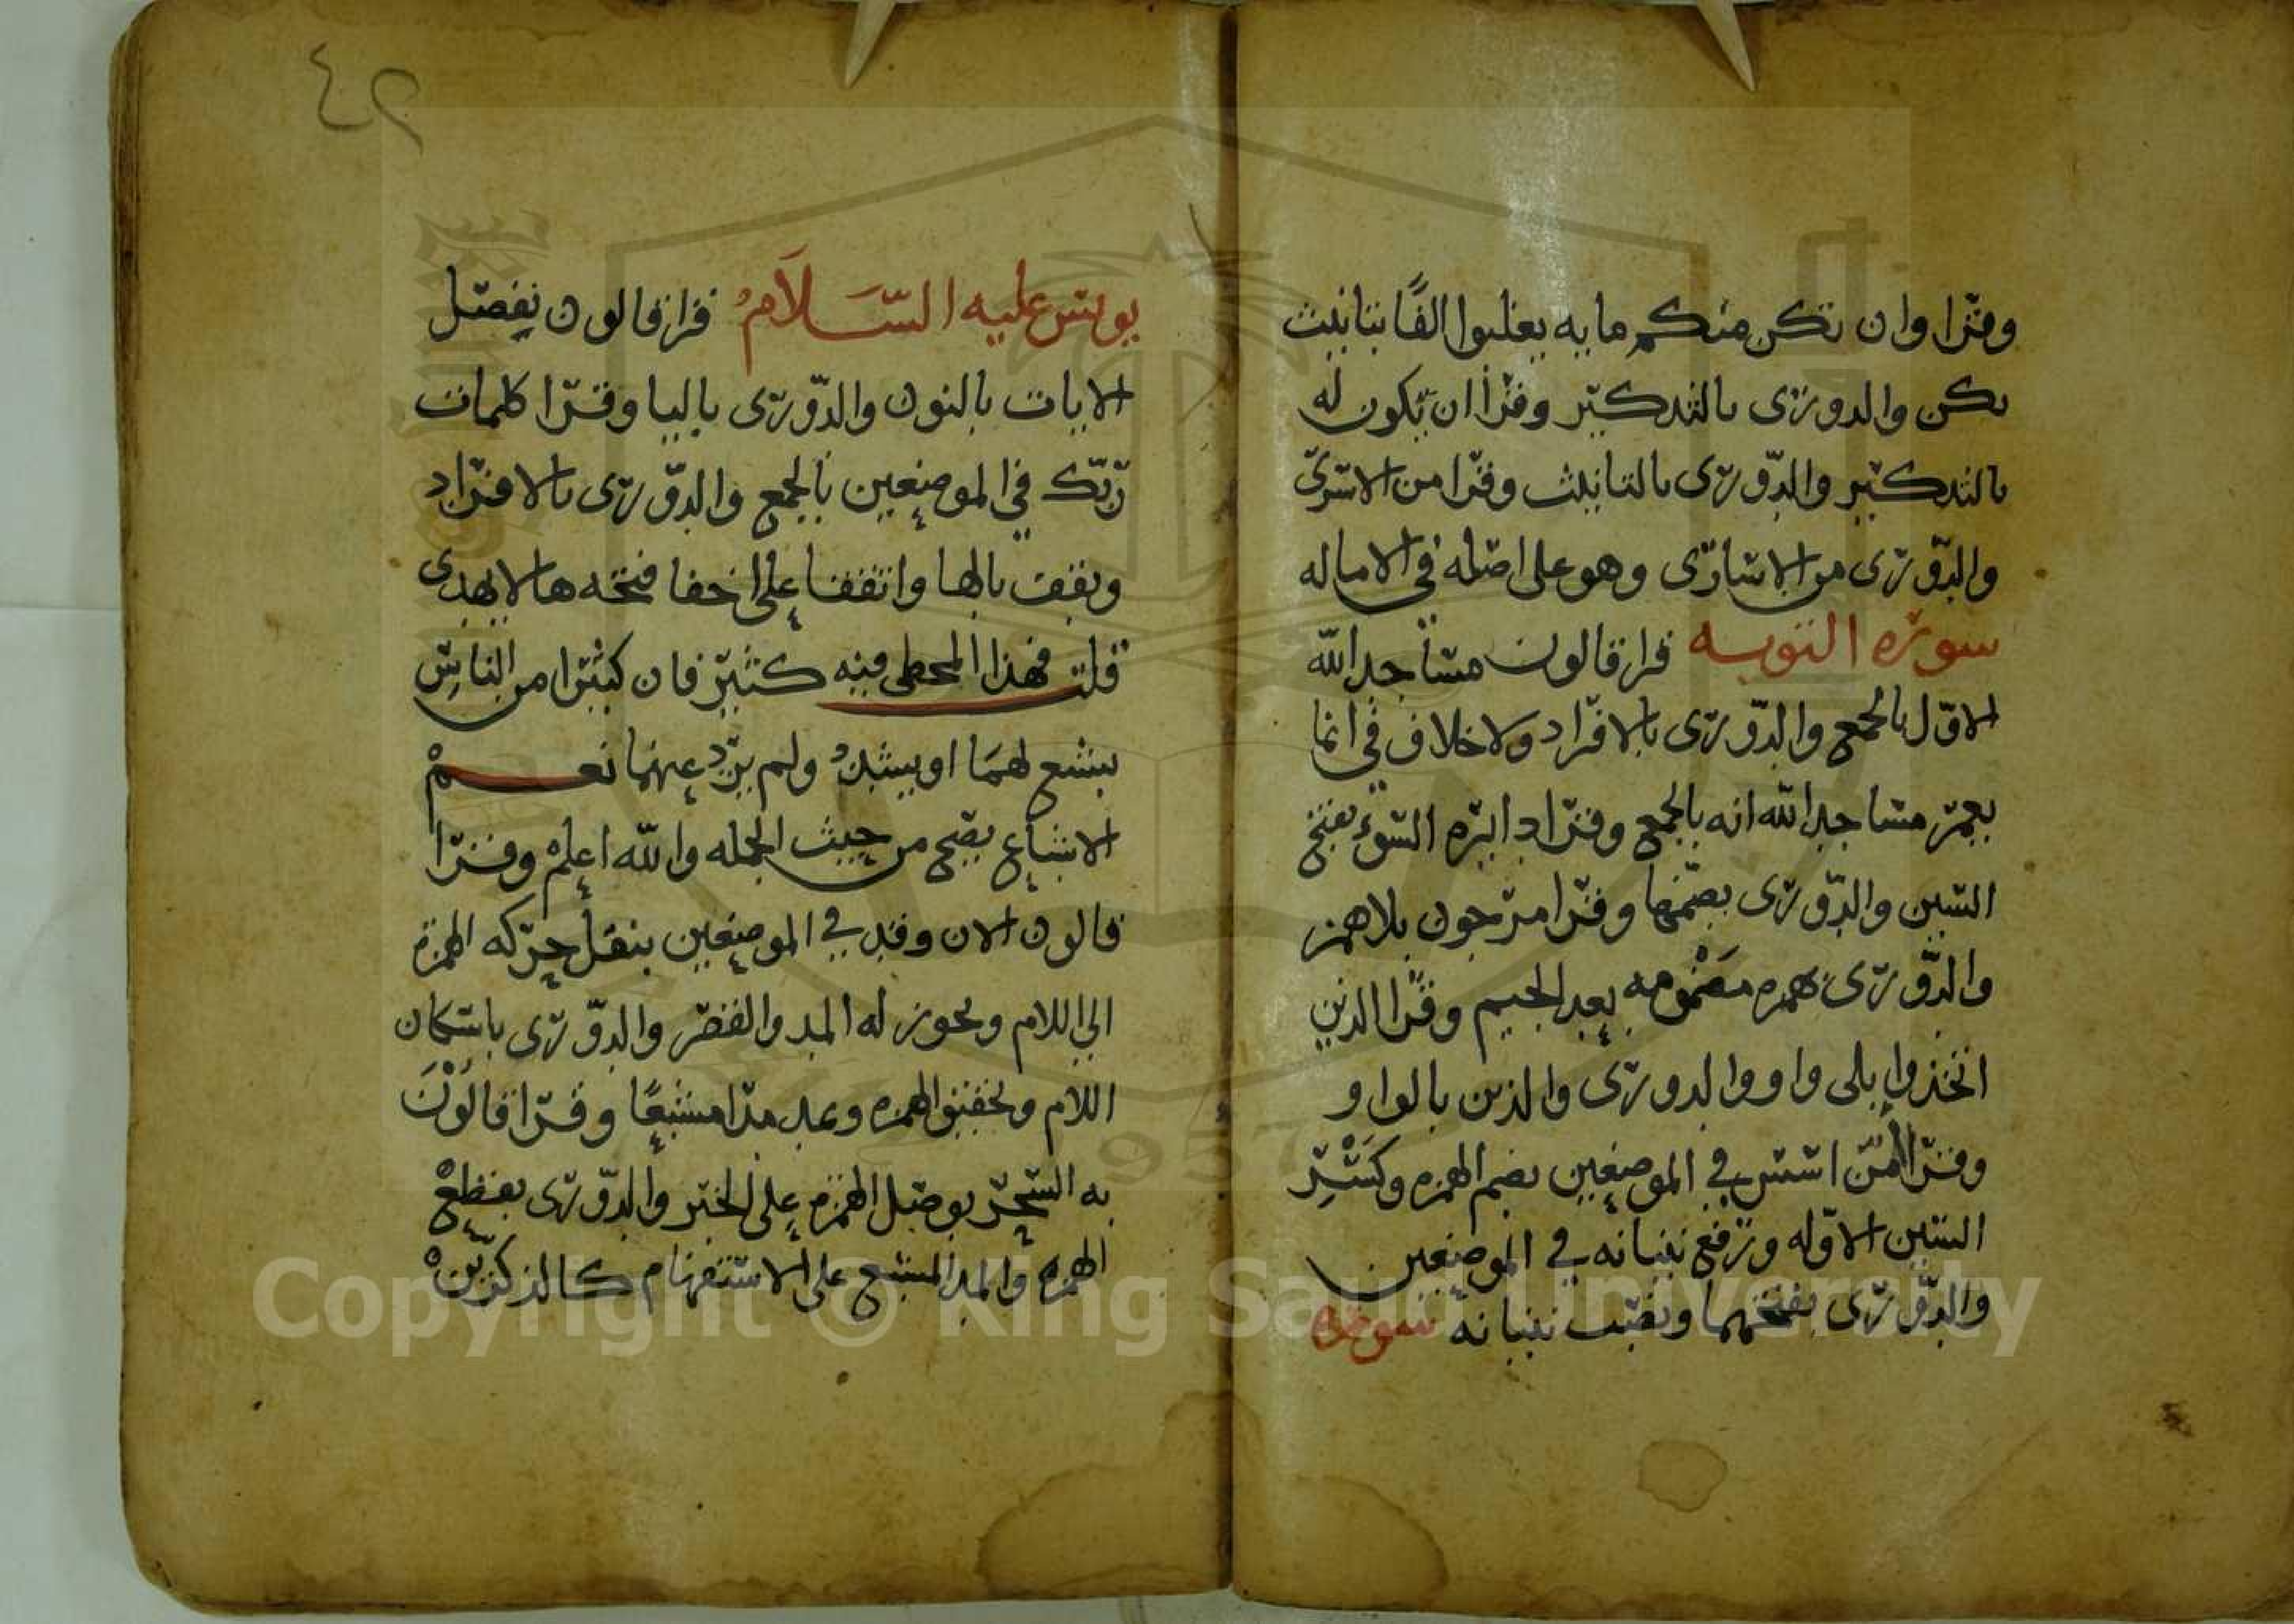 وقرا وان تكن منكم مايه يغلبوا الفًا بتانيث
تكن والدورى بالتدكير وقرا ان يكون له
بالتدكير والدّورى بالتانيث وقرا من الاسرى
والدّورى من الاسارى وهو على اصله في الاماله
سوره التوبه قرا قالون مساجد الله
الاوّل بالجمع والدّورى بالافراد ولا خلاف في انما
يعمر مساجد الله انه بالجمع وقرا دايره السّوء بفتح
السّين والدّورى بضمّها وقرا مرجون بلا همز
والدّورى بهمزه مَضْمومه بعد الجيم وقرا الذين
اتخذوا بلى واو والدورى والذين بالواو
وقرا امّن اسّس في الموضعين بضم الهمزه وكَسْر
السّين الاوّله ورفع بنيانه في الموضعين
والدّورى بفتحهما ونصب بنيانه سوره
يونس عليه السَّلَامُ قرا قالون نفصّل
الايات بالنون والدّورى باليا وقرا كلمات
رّبّك في الموضعين بالجمع والدّورى بالافراد
ويقف بالها واتفقا على اخفا فتحه ها لا يهدى
قلت فهذا المخطى فيه كثير فان كثيرا من الناس
يشبع لهمَا او يشدّدُ ولم يرد عنهما نعمْ
الاشباع يصح من حيث الجمله والله اعلمْ وقرا
قالون الان وقد في الموضعين بنقل حركه الهمزة
الى اللام ويجوز له المد والقصر والدّورى باسكان
اللام وتحقيق الهمزه ويمد مدّا مشبعًا وقرا قالُوْنَ
به السّحر بوصل الهمزة على الخبر والدّورى بقطعْ
الهمزه والمد المشبع على الاستفهام كالذكرّينْ
٢٤
Copyright © King Saud University